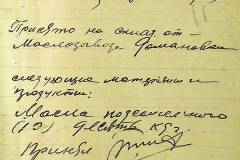 Принято на склад от
Маслозавода Романовки
следующие материалы и
продукты:
Масла подсолнечного
(10) десять кг.
Принял